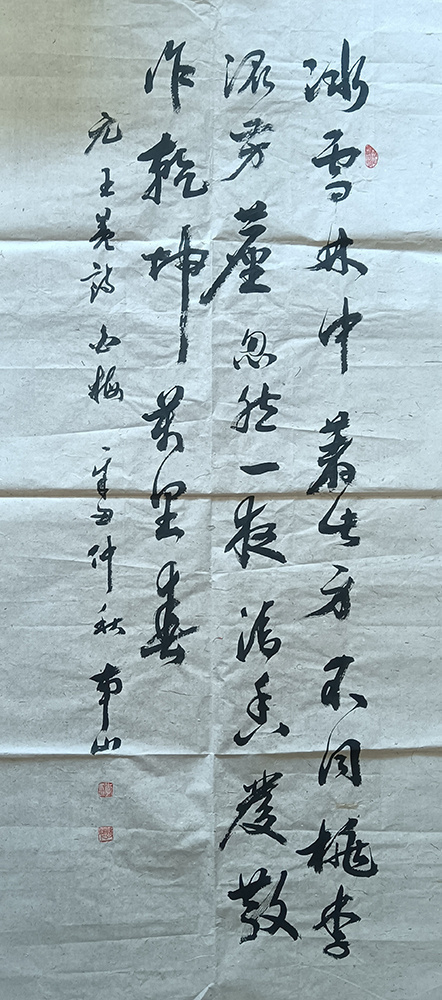 冰雪林中著此身不同桃李
混芳塵忽然一夜清香發散
作乾坤萬里春
元王冕詩白梅 辛丑仲秋 山